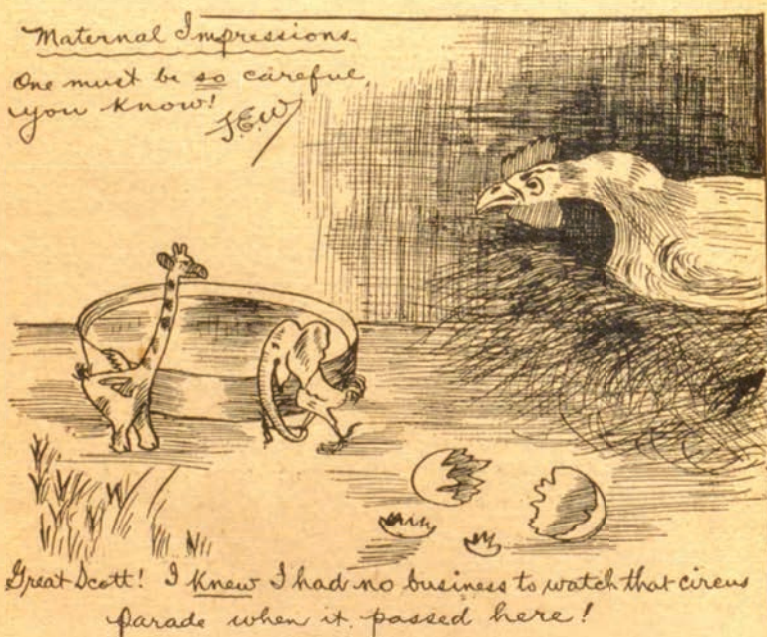 Maternal Impressions
One must be so careful,
you know!
J.E.W
Great Scott! I knew I had no business to watch that circus
parade when it passed here!